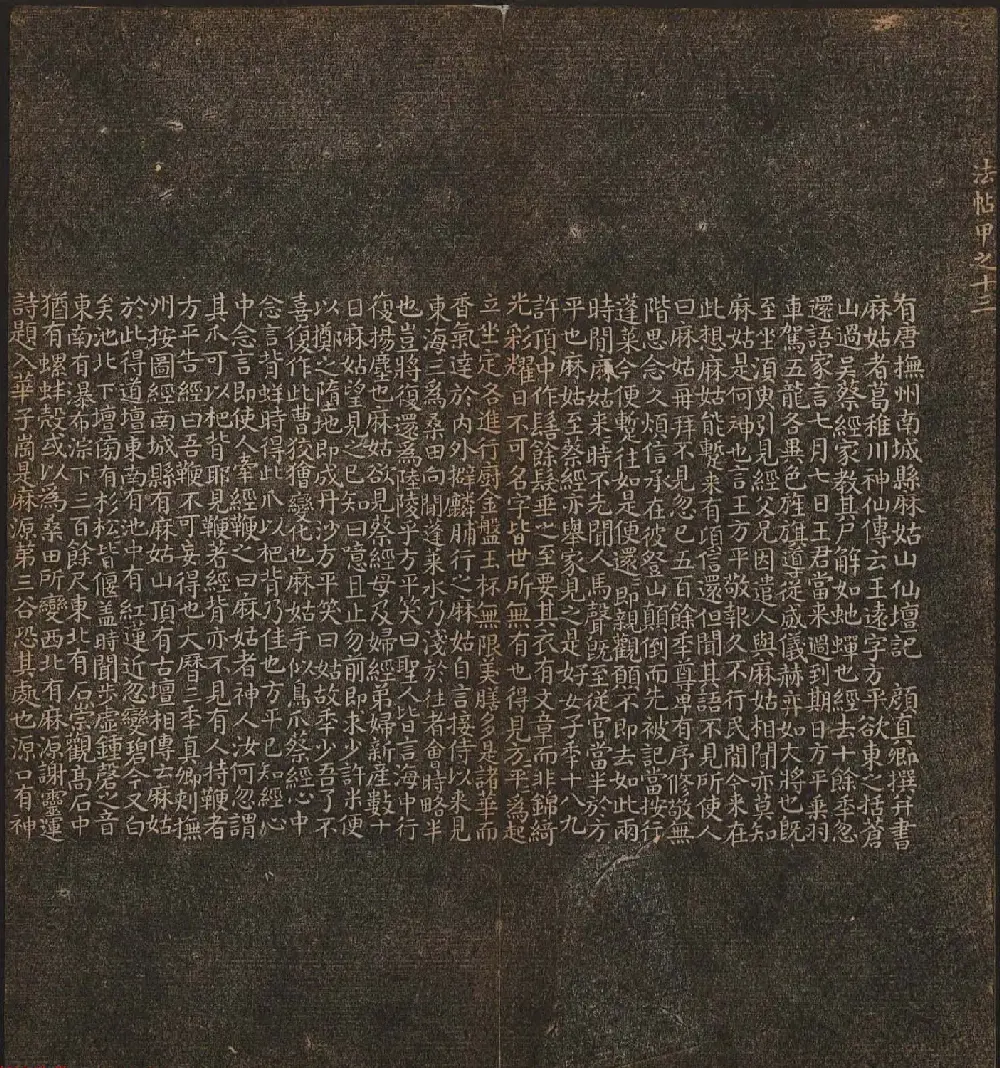 法帖甲之十三
有唐撫州南城縣麻姑山仙壇記 顏真卿撰并書
麻姑者葛稚川神仙傳云王遠字方平欲東之括蒼
山過吳蔡經家教其尸解如虵蟬也經去十餘年忽
還語家言七月七日王君當来過到期日方平乗羽
車駕五龍各異色旌旗導從威儀赫弈如大將也既
至坐湏臾引見經父兄因遣人與麻姑相聞亦莫知
麻姑是何神也言王方平敬報久不行民間今来在
此想麻姑能蹔来有頃信還但聞其語不見所使人
曰麻姑再拜不見忽已五百餘年尊卑有序修敬無
階思念久煩信承在彼登山顛倒而先被記當按行
蓬莱今便蹔往如是便還還即親觀願不即去如此兩
時間麻姑来来時不先聞人馬聲既至從官當半於方
平也麻姑至蔡經亦舉家見之是好女子年十八九
許頂中作髻餘髮垂之至要其衣有文章而非錦綺
光彩耀日不可名字皆世所無有也得見方平方平為起
立坐定各進行廚金盤玉杯無限美膳多是諸華而
香氣達於内外擗麟脯行之麻姑自言接侍以来見
東海三為桑田向間蓬莱水乃淺於往者會時略半
也豈將復還為陸陵乎方平笑曰聖人皆言海中行
復揚塵也麻姑欲見蔡經母及婦經弟婦新産數十
日麻姑望見之已知曰噫且止勿前即求少許米便
以擲之墮地即成丹沙方平笑曰姑故年少吾了不
喜復作此曹狡獪變化也麻姑手似鳥爪蔡經心中
念言背蛘時得此爪以杷背乃佳也方平已知經心
中念言即使人牽經鞭之曰麻姑者神人汝何忽謂
其爪可以杷背耶見鞭著經背亦不見有人持鞭者
方平告經曰吾鞭不可妄得也大曆三年真卿刺撫
州按圖經南城縣有麻姑山頂有古壇相傳云麻姑
於此得道壇東南有池中有紅蓮近忽變碧今又白
矣池北下壇傍有杉松皆偃盖時聞步虛鍾磬之音
東南有瀑布淙下三百餘尺東北有石崇觀高石中
猶有螺蚌殻或以為桑田所變西北有麻源謝靈運
詩題入華子崗是麻源第三谷恐其處也源口有神